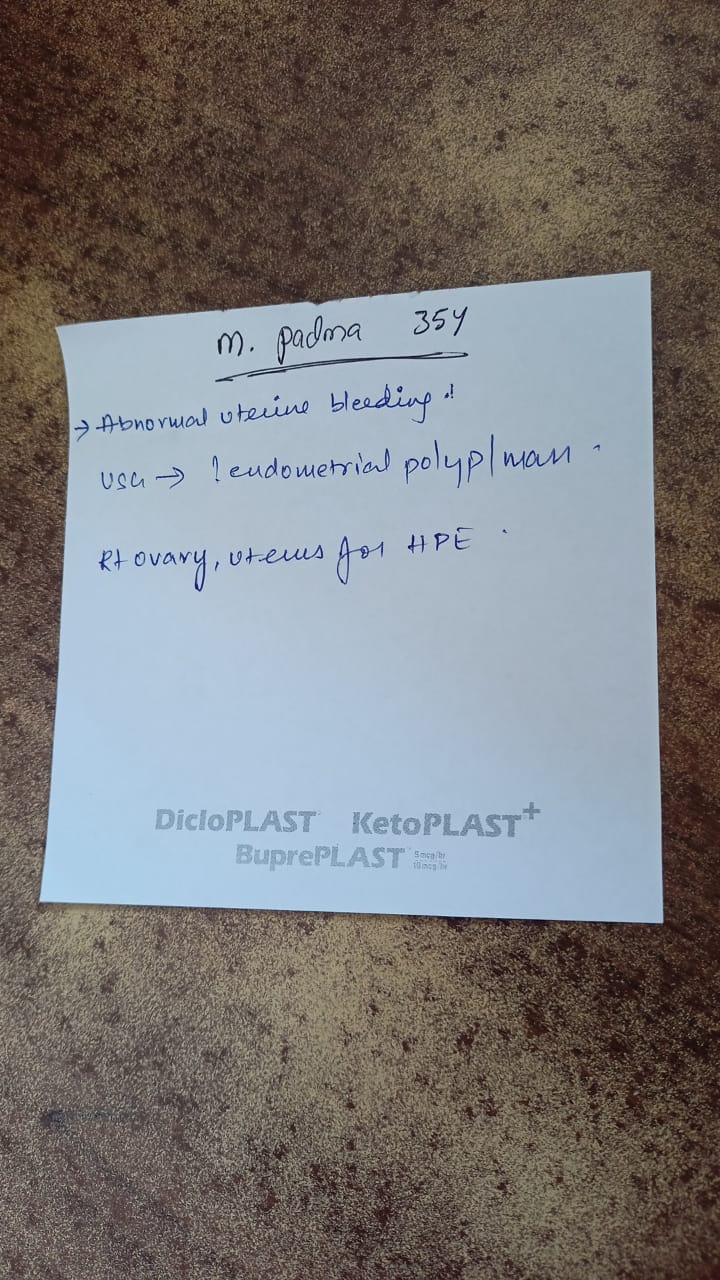 M. Padma 35Y
→ Abnormal uterine bleeding.
USG → ? endometrial polyp/mass.
Rt ovary, uterus for HPE.
DicloPLAST KetoPLAST+
BuprePLAST 5mcg/hr
10mcg/hr